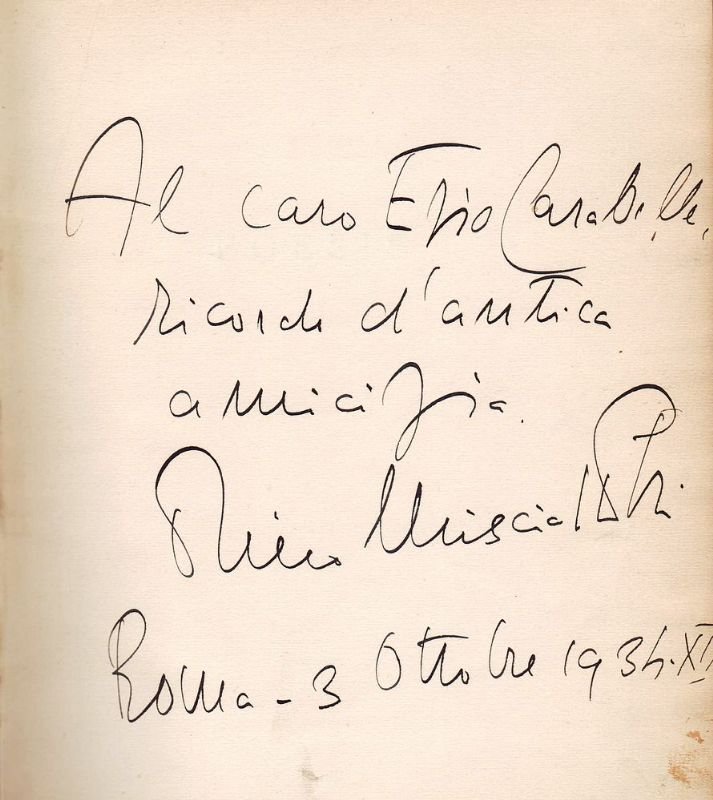 Al caro Ezio Carabella,
ricordo d'antica
amicizia.
Piero Misciattelli.
Roma - 3 Ottobre 1934.XII